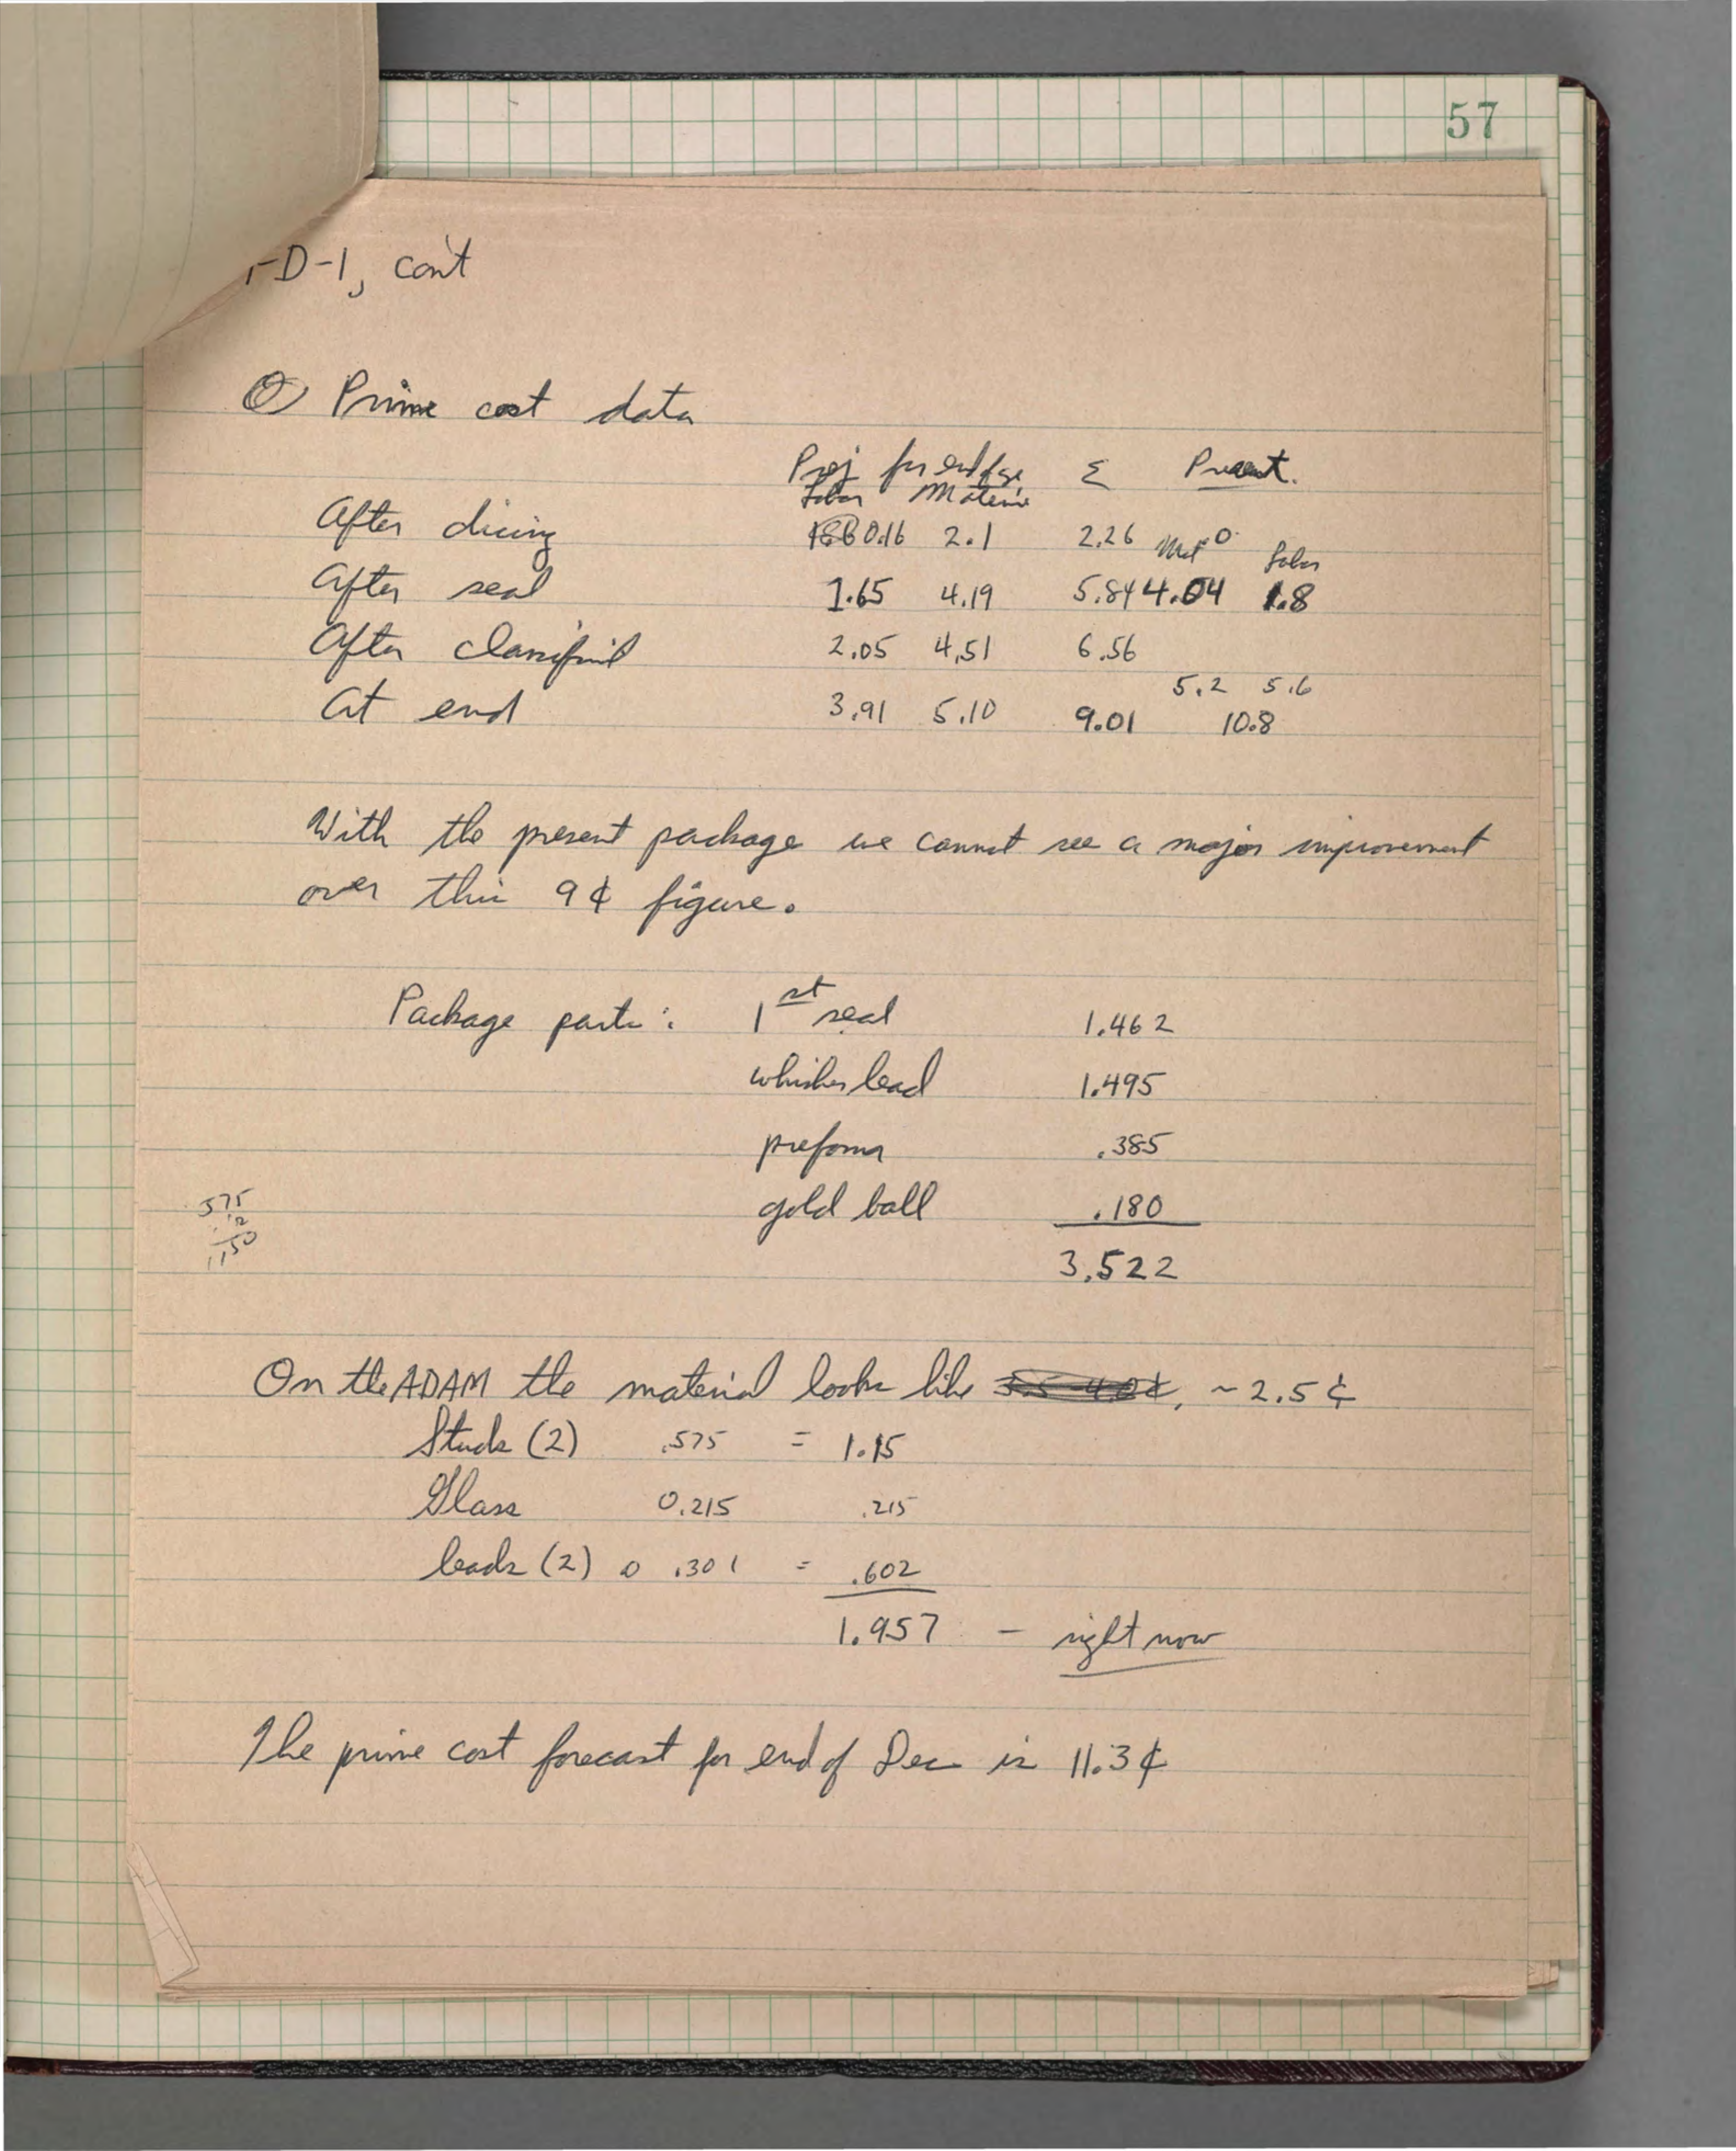 57
-D-1, con't
Prime cost data
Proj for end of Σ Present.
Labor Material
After dicing 0.16 2.1 2.26 Mat Labor
After seal 1.65 4.19 5.84 4.04 1.8
After classifi 2.05 4.51 6.56
5.2 5.6
At end 3.91 5.10 9.01 10.8
With the present package we cannot see a major improvement
over this 9¢ figure.
Package parts: 1st seal 1.462
whisker lead 1.495
preform .385
gold ball .180
575
2
1150
3.522
On the ADAM the material looks like ~2.5¢
Studs (2) .575 = 1.15
Glass 0.215 .215
leads (2) @ .301 = .602
1.957 - right now
The prime cost forecast for end of Dec is 11.3¢